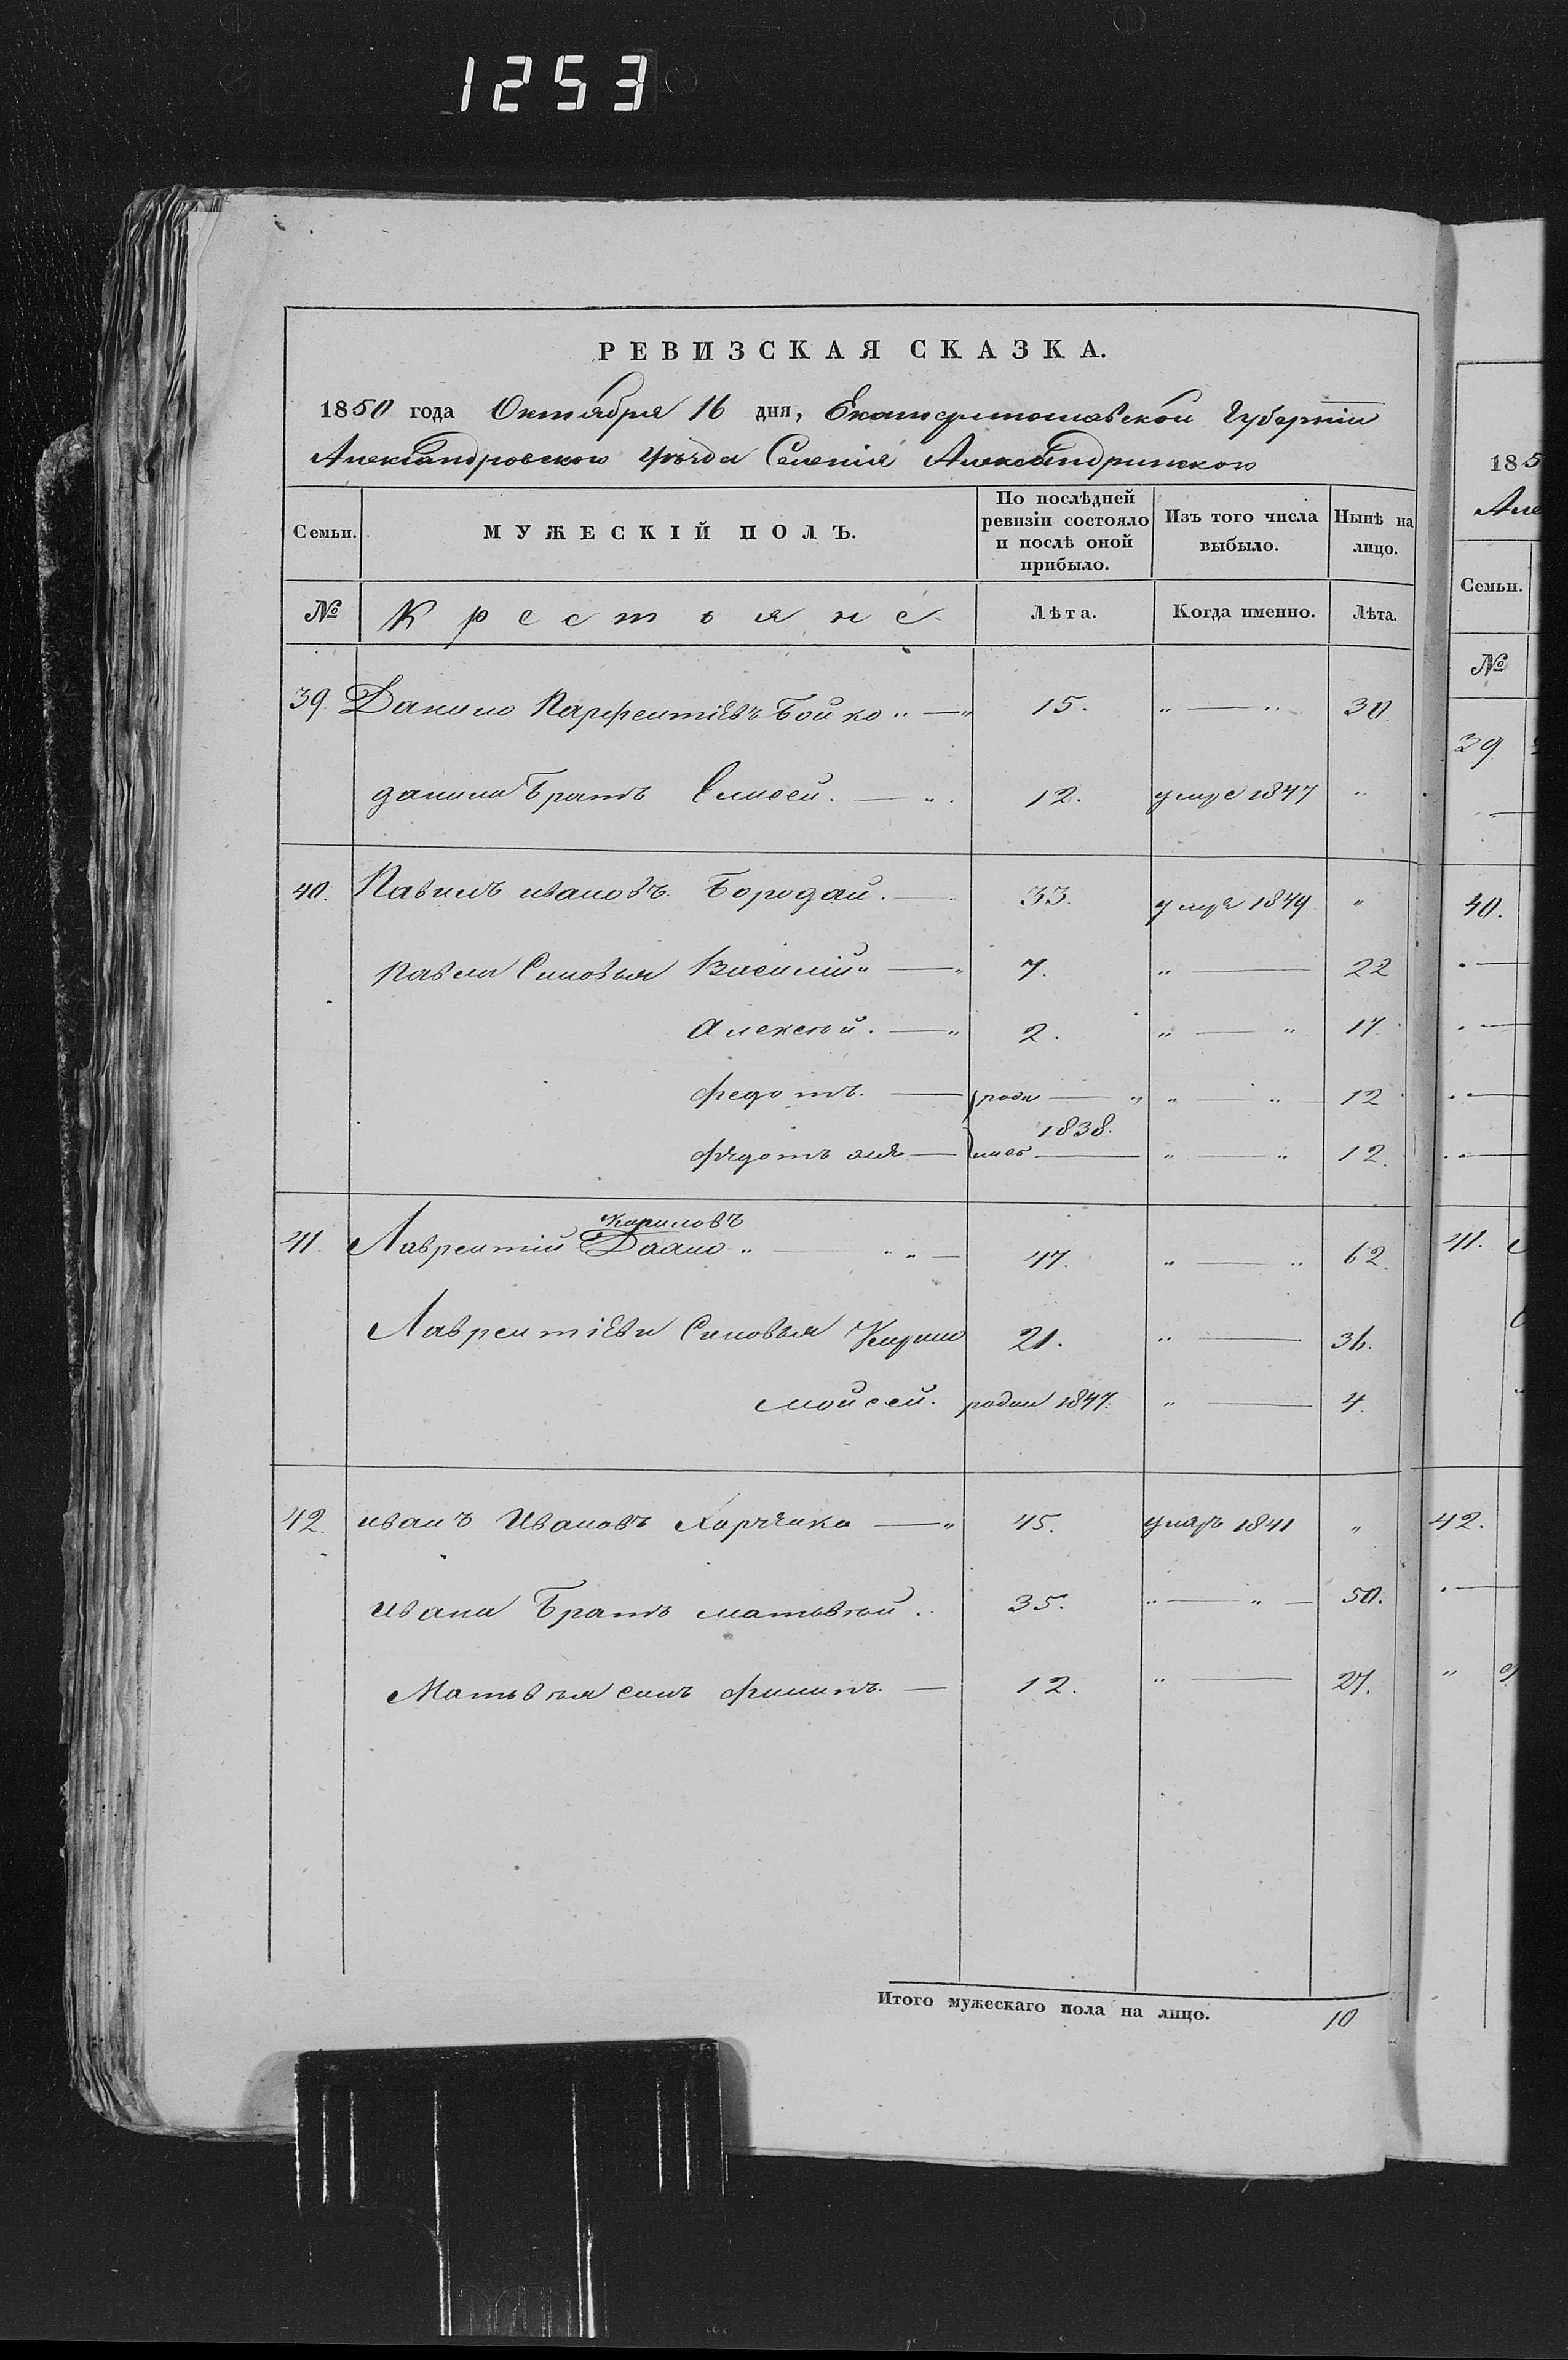 1253
РЕВИЗСКАЯ СКАЗКА.
1850 года Октября 16 дня, Екатеринославской Губерніи
Александровского уѣзда Селенія Александринского
Семьи. МУЖЕСКІЙ ПОЛЪ. По послѣдней ревизіи состояло и послѣ оной прибыло. Изъ того числа выбыло. Нынѣ на лицо.
№ Крестьяне Лѣта. Когда именно. Лѣта.
39. Данило Парфентіевъ Бойко „ — „ 15. „ — „ 30
данила Братъ Елисей. — „ 12. умре 1847 „
40. Павилъ ивановъ Бородай. — 33. умре 1849 „
Павла Сыновья Василій „ — „ 7. „ — 22
Алексѣй. — „ 2. „ — „ 17
федотъ. — роди — „ „ — „ 12
1838.
федотъ же — лись — „ — „ 12.
Кириловъ
41. Лаврентій „ — „ — 47. „ — „ 62.
Лаврентіева Сыновья Кирило 21. „ — 36.
Мойсей. родил 1847. „ — 4.
42. иванъ Ивановъ Харченко — „ 45. умръ 1841 „
Ивана Братъ матвѣй. 35. „ — „ — 50.
Матвѣя сынъ филипъ. — 12. „ — 27.
Итого мужескаго пола на лицо. 10
185
Але
Семьи.
№
39
40.
41.
42.